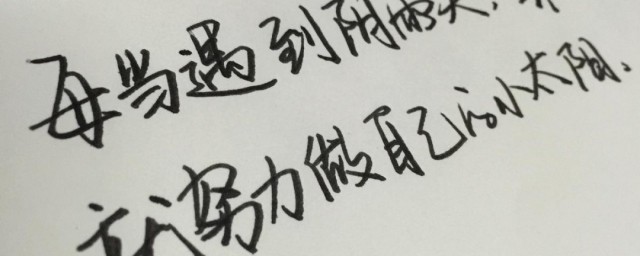 每当遇到阴雨天，
我努力做自己的小太阳.